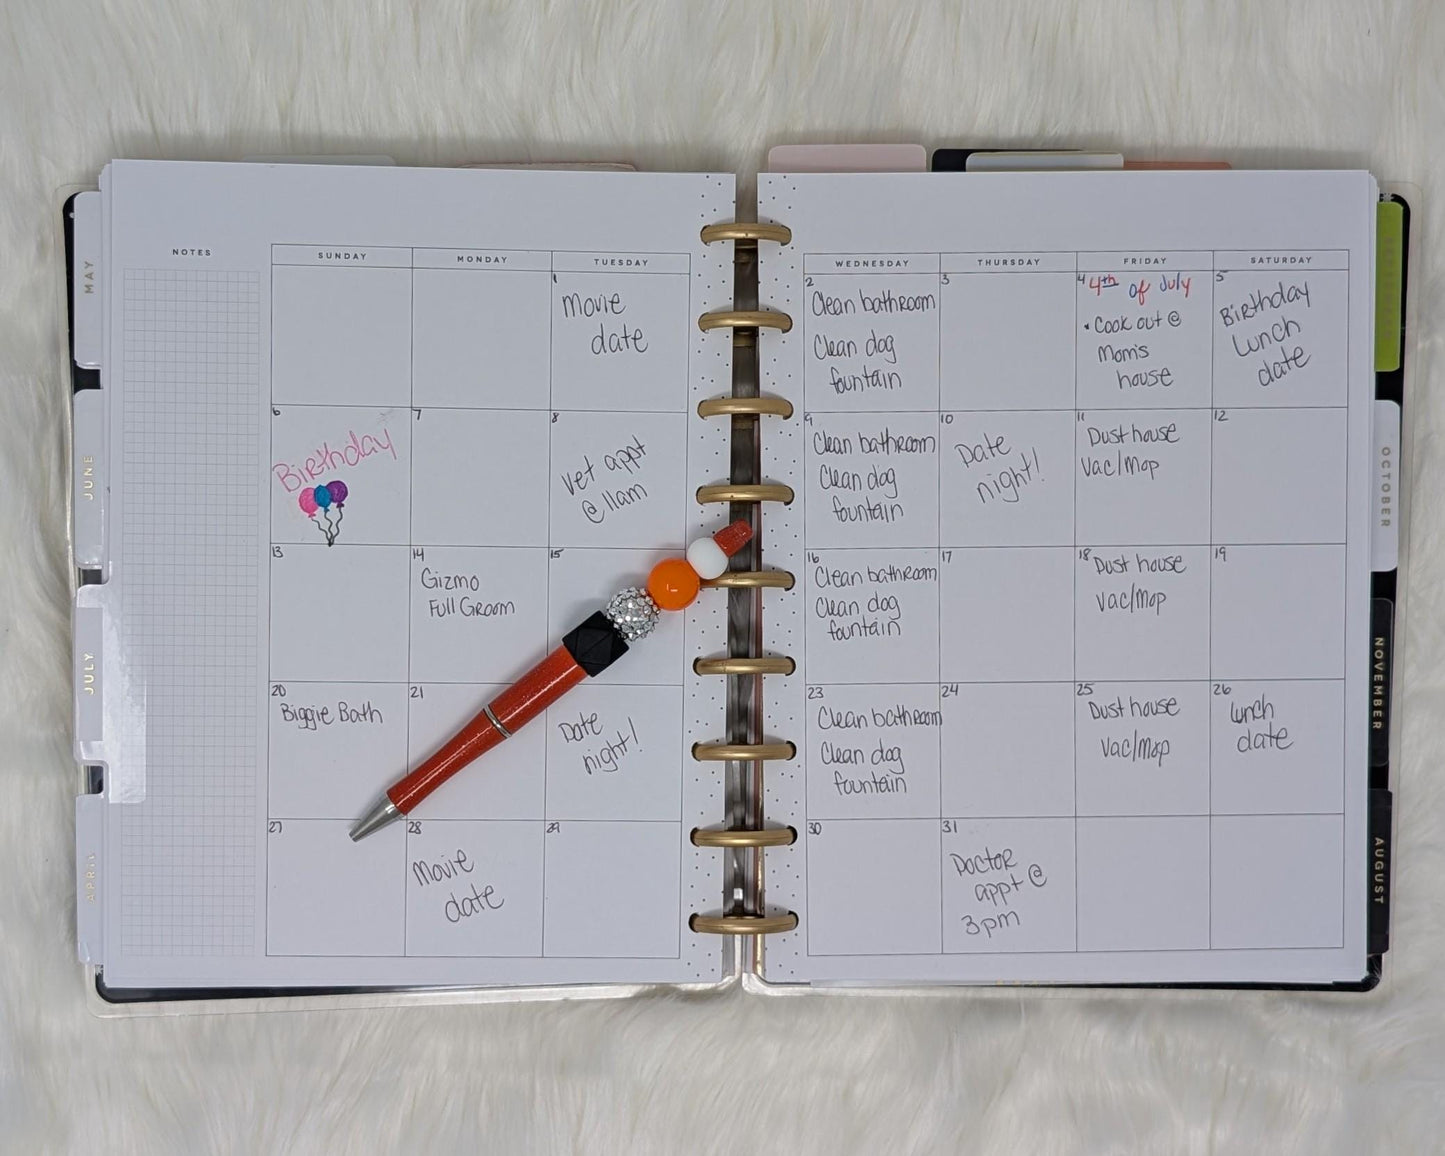 NOTES
SUNDAY
MONDAY
TUESDAY
WEDNESDAY
THURSDAY
FRIDAY
SATURDAY
1
Movie
date
2
Clean bathroom
Clean dog
fountain
3
4
4th of July
• Cook out @
Mom's
house
5
Birthday
Lunch
date
6
Birthday
7
8
Vet appt
@ 11am
9
Clean bathroom
Clean dog
fountain
10
Date
night!
11
Dust house
Vac/Mop
12
13
14
Gizmo
Full Groom
15
16
Clean bathroom
Clean dog
fountain
17
18
Dust house
Vac/Mop
19
20
Biggie Bath
21
Date
night!
23
Clean bathroom
Clean dog
fountain
24
25
Dust house
Vac/Mop
26
Lunch
date
27
28
Movie
date
29
30
31
Doctor
appt @
3pm
MAY
JUNE
JULY
APRIL
OCTOBER
NOVEMBER
AUGUST